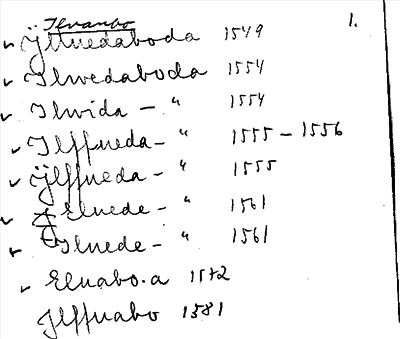 Ilvanbo 1.
Ÿllnedaboda 1549
Ilwedaboda 1554
Ilwida - " 1554
Ilffueda - " 1555 - 1556
Ÿlffueda - " 1555
Eluede - " 1561
Iluede - " 1561
Eluabo.a 1572
Jlffuabo 1581